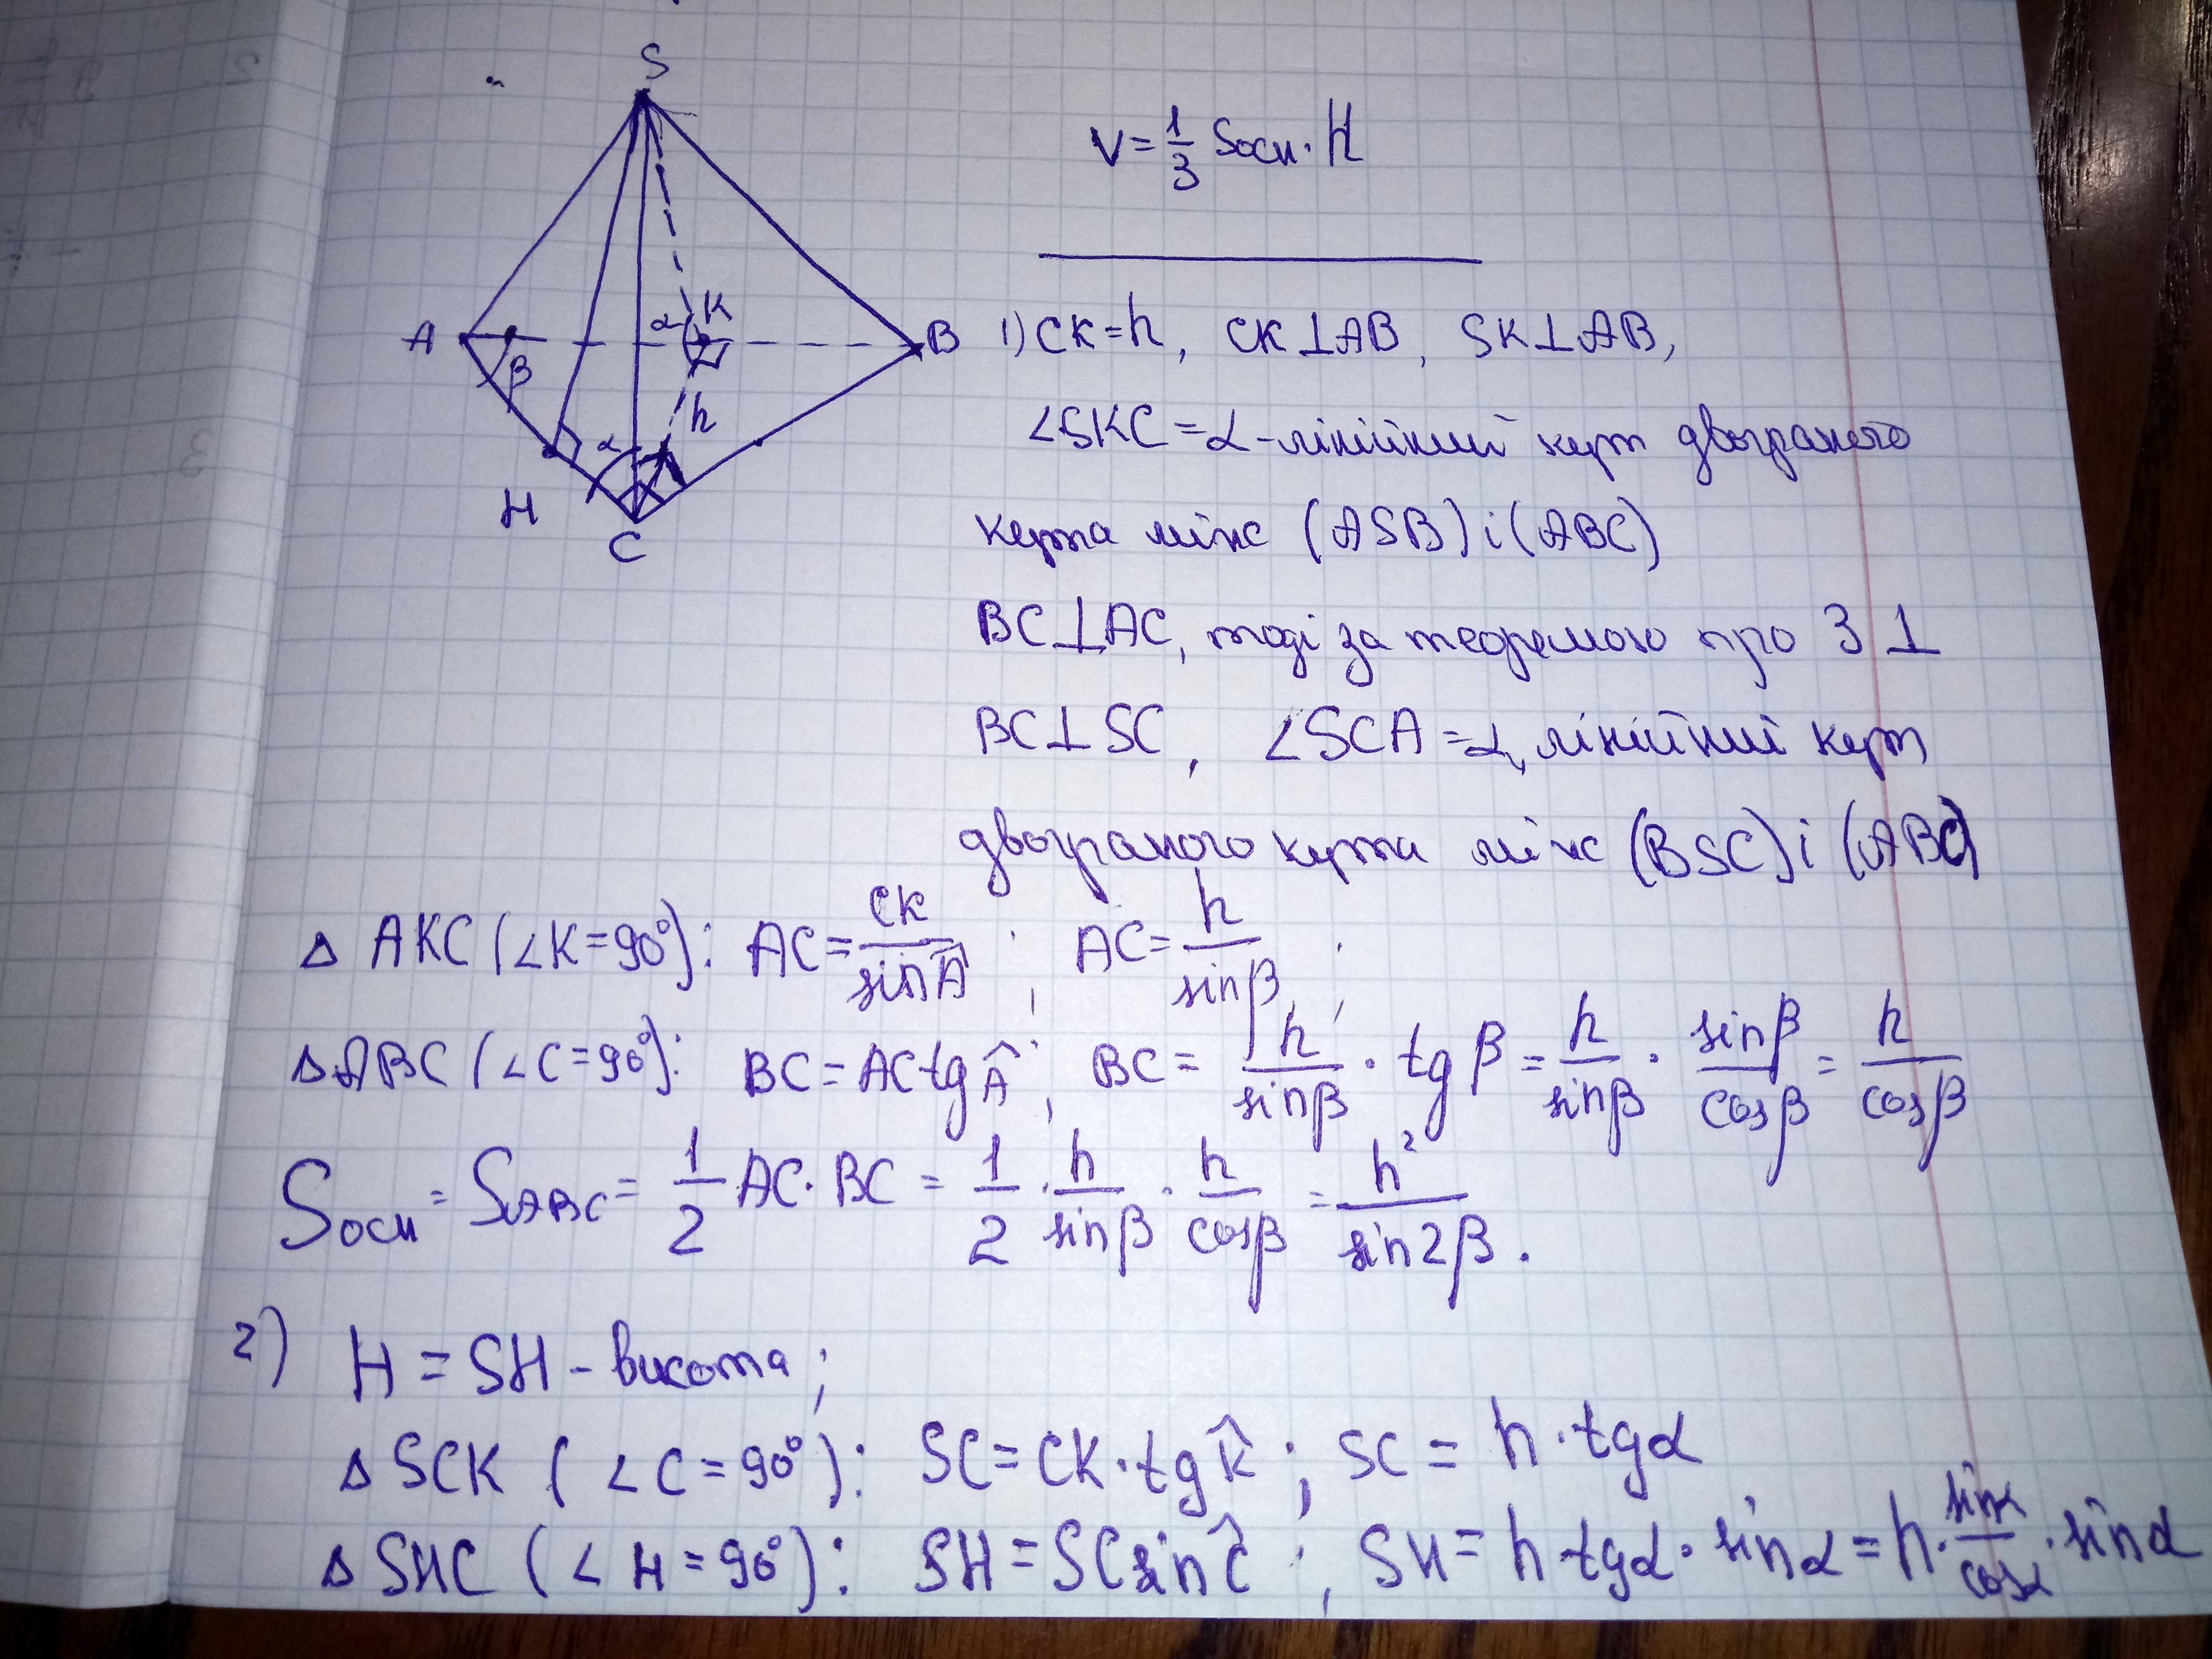 S
A
B
C
K
H
α
β
h
α
V = 1/3 Sосн · H
1) CK = h, CK ⊥ AB, SK ⊥ AB,
∠SKC = α - лінійний кут двограного
кута між (ASB) і (ABC)
BC ⊥ AC, тоді за теоремою про 3 ⊥
BC ⊥ SC, ∠SCA = α, лінійний кут
двограного кута між (BSC) і (ABC)
Δ AKC (∠K = 90°): AC = CK / sin Â ; AC = h / sin β ;
Δ ABC (∠C = 90°): BC = AC tg Â ; BC = h / sin β · tg β = h / sin β · sin β / cos β = h / cos β
Sосн = SABC = 1/2 AC · BC = 1/2 · h / sin β · h / cos β = h² / sin 2β .
2) H = SH - висота ;
Δ SCK (∠C = 90°): SC = CK · tg K̂ ; SC = h · tg α
Δ SHC (∠H = 90°): SH = SC sin Ĉ ; SH = h · tg α · sin α = h · sin α / cos α · sin α